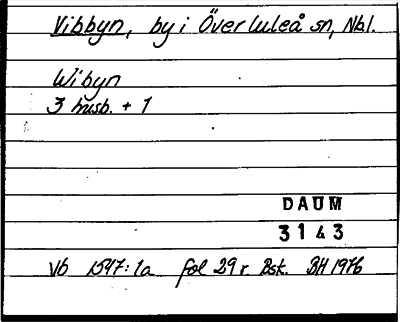 Vibbyn, by i Överluleå sn, Nbl.
Wibyn
3 husb. + 1
DAUM
3143
Vb 1547:1a fol 29 r Bsk. BH 1976